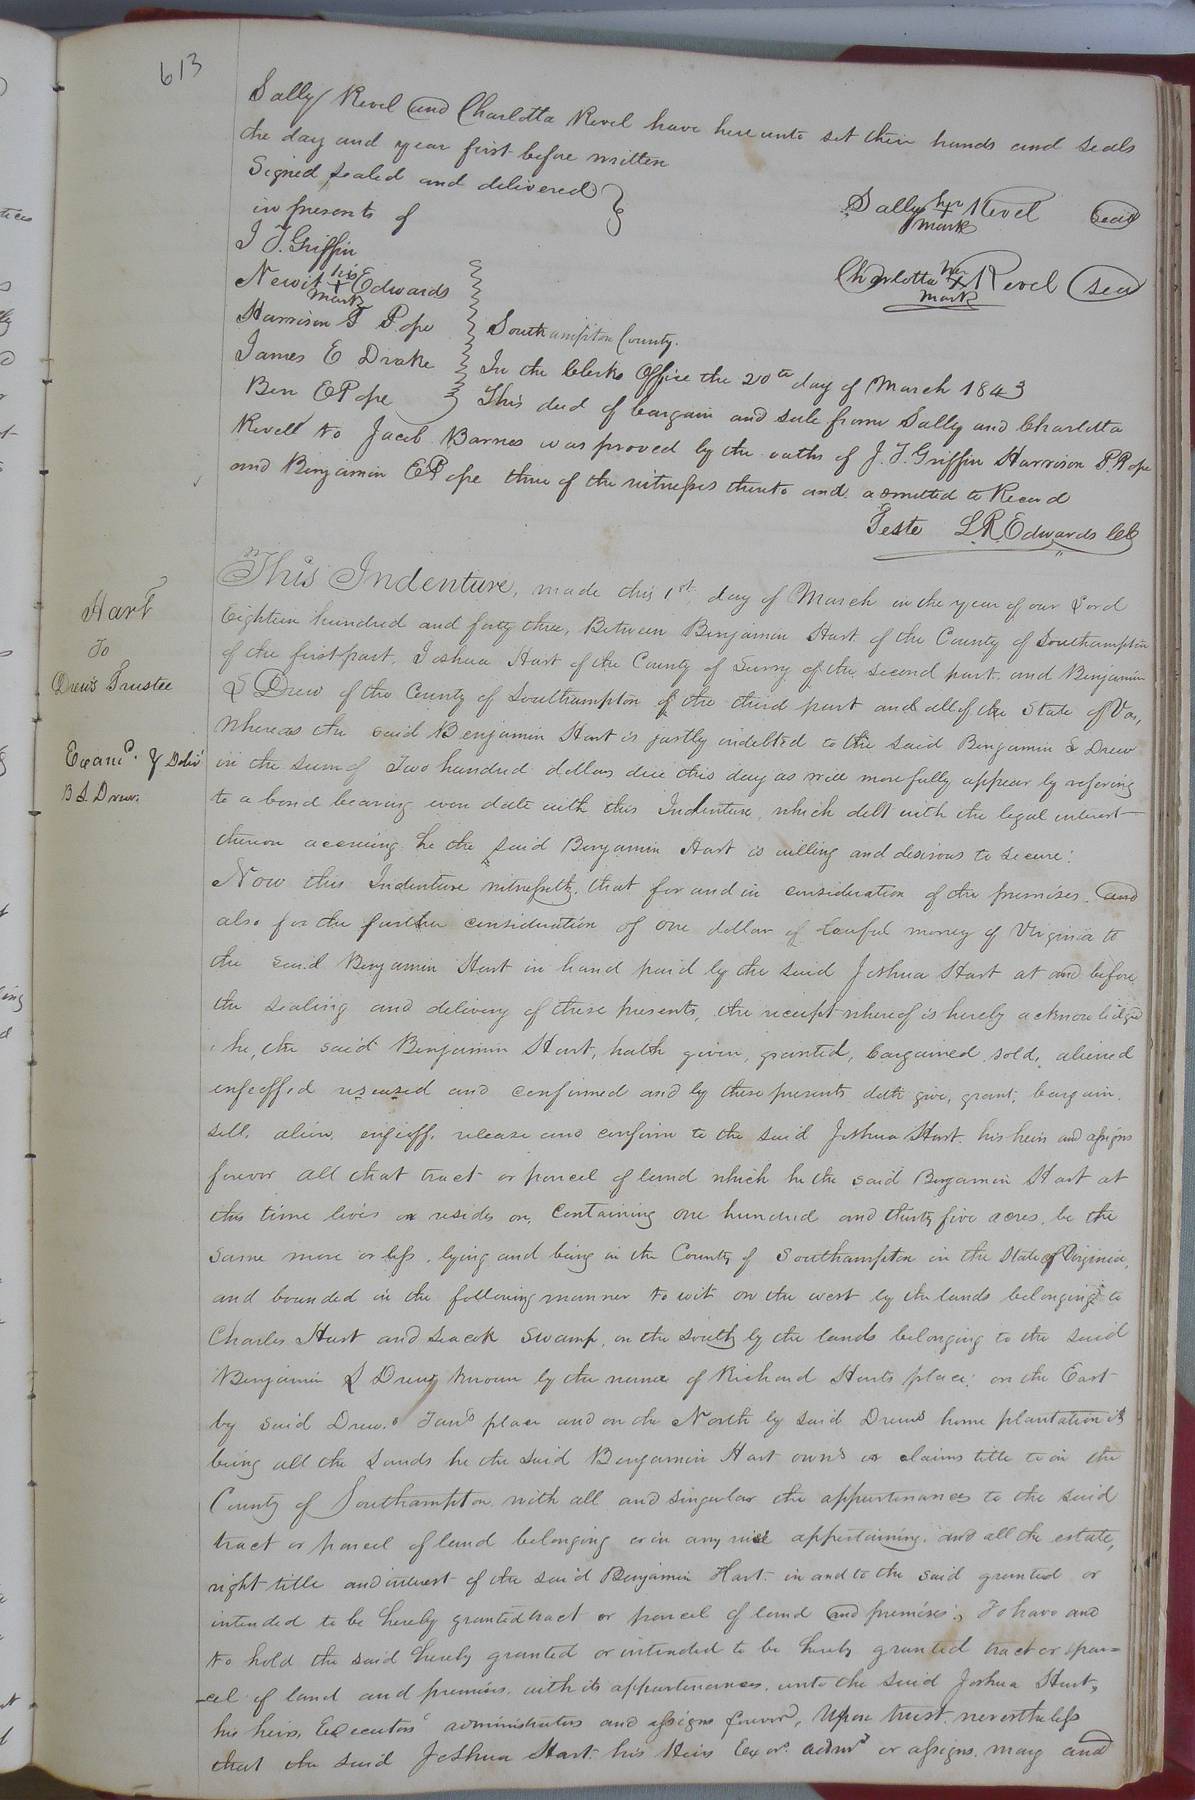 613
Sally Revel and Charlotta Revel have here unto set their hands and seals
the day and year first before written
Signed sealed and delivered
in presents of
J T. Griffin
Sally her + mark Revel seal
Newit his + mark Edwards
Charlotta her + mark Revel seal
Harrison P Pope
Southampton County.
James E Drake
In the Clerks Office the 20th day of March 1843
Ben E Pope
This deed of bargain and sale from Sally and Charlotta
Revell to Jacob Barnes was proved by the oaths of J. T. Griffin Harrison P. Pope
and Benjamin E Pope three of the witnesses thereto and admitted to Record
Teste L.R. Edwards Clk
Hart
To
Drew's Trustee
Examd. & Deliv
B S Drew.
This Indenture, made this 1st. day of March in the year of our Lord
Eighteen hundred and forty three, Between Benjamin Hart of the County of Southampton
of the first part, Joshua Hart of the County of Surry of the second part, and Benjamin
S Drew of the County of Southampton of the third part and all of the State of Va,
Whereas the said Benjamin Hart is justly indebted to the said Benjamin S Drew
in the sum of Two hundred dollars due this day as will more fully appear by refering
to a bond bearing even date with this Indenture, which debt with the legal interest
thereon accruing he the said Benjamin Hart is willing and desirous to secure:
Now this Indenture witnesseth, that for and in consideration of the premises, and
also for the further consideration of one dollar of lawful money of Virginia to
the said Benjamin Hart in hand paid by the said Joshua Hart at and before
the sealing and delivery of these presents, the receipt whereof is hereby acknowledged
he, the said Benjamin Hart, hath given, granted, bargained, sold, aliened
enfeoffed released and confirmed and by these presents doth give, grant, bargain,
sell, alien, enfeoff, release and confirm to the said Joshua Hart his heirs and assigns
forever all that tract or parcel of land which he the said Benjamin Hart at
this time lives or resides on, Containing one hundred and thirty five acres, be the
same more or less, lying and being in the County of Southampton in the State of Virginia,
and bounded in the following manner to wit on the west by the lands belonging to
Charles Hart and Seacok Swamp, on the south by the lands belonging to the said
Benjamin S Drew known by the name of Richard Harts place; on the East
by said Drew.s place and on the North by said Drews home plantation it
being all the Lands he the said Benjamin Hart owns or claims title to in the
County of Southampton with all and singular the appurtenances to the said
tract or parcel of land belonging or in any wise appertaining, and all the estate,
right title and interest of the said Benjamin Hart in and to the said granted or
intended to be hereby granted tract or parcel of land and premises; To have and
to hold the said hereby granted or intended to be hereby granted tract or par=
-cel of land and premises, with its appurtenances, unto the said Joshua Hart,
his heirs, Executors administrators and assigns forever, Upon trust nevertheless
that the said Joshua Hart his Heirs Exors. admrs or assigns may and